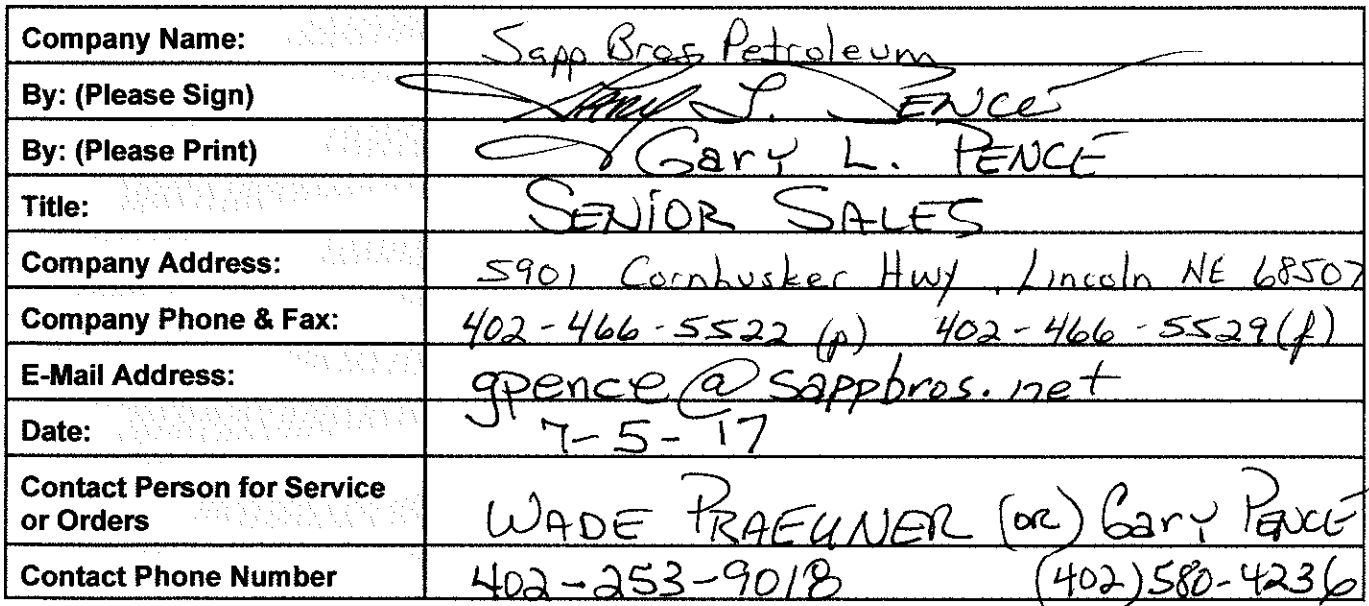 Company Name: Sapp Bros Petroleum
By: (Please Sign) Gary L. PENCE
By: (Please Print) Gary L. PENCE
Title: SENIOR SALES
Company Address: 5901 Cornhusker Hwy, Lincoln NE 68507
Company Phone & Fax: 402-466-5522 (p) 402-466-5529 (f)
E-Mail Address: gpence@sappbros.net
Date: 7-5-17
Contact Person for Service
or Orders WADE PRAEUNER (OR) Gary PENCE
Contact Phone Number 402-253-9018 (402)580-4236